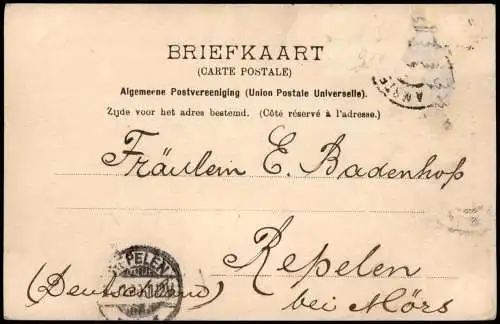 BRIEFKAART
(CARTE POSTALE)
Algemeene Postvereeniging (Union Postale Universelle).
Zijde voor het adres bestemd. (Côté réservé à l'adresse.)
Fräulein E. Badenhop
Repelen
(Deutschland) bei Mörs